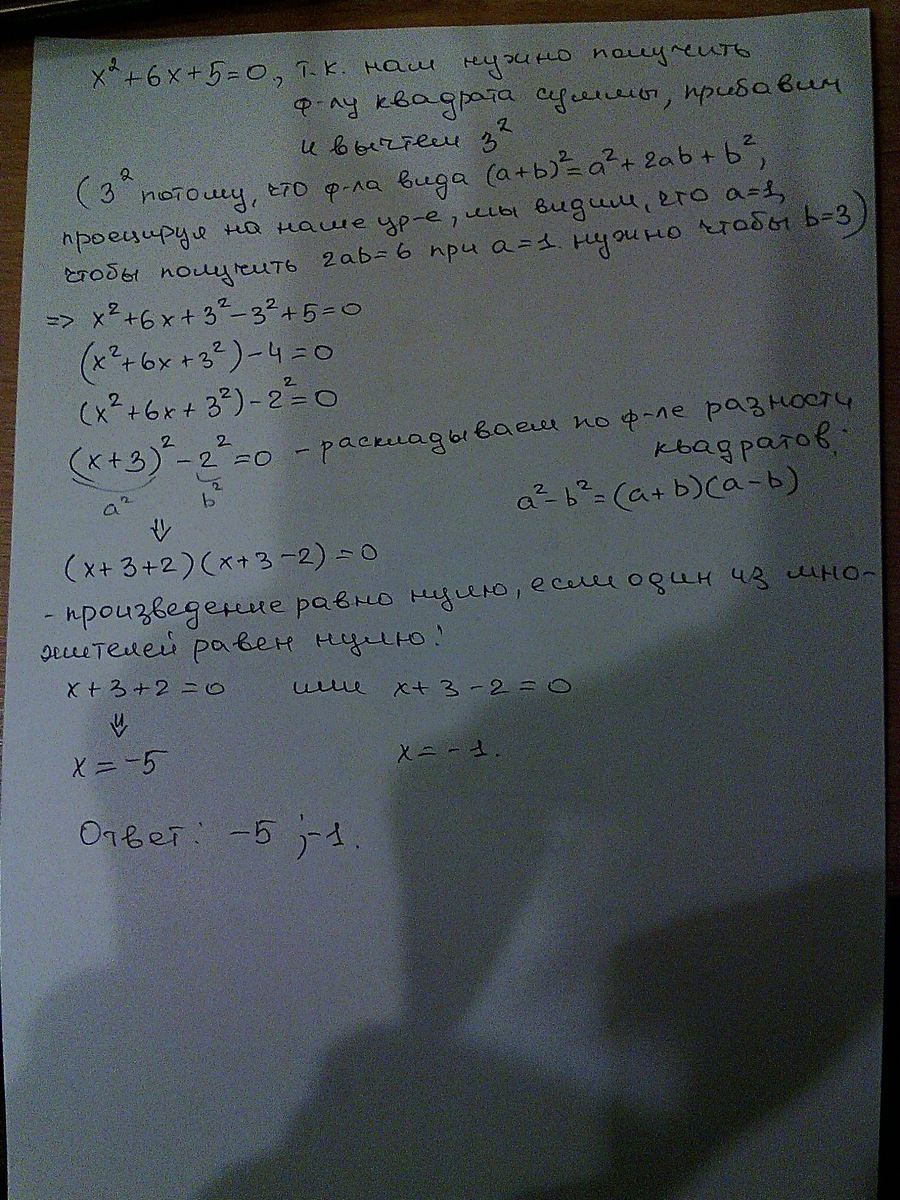 x² + 6x + 5 = 0, т.к. нам нужно получить
ф-лу квадрата суммы, прибавим
и вычтем 3²
(3² потому, что ф-ла вида (a+b)² = a² + 2ab + b²,
проецируя на наше ур-е, мы видим, что a=1,
чтобы получить 2ab=6 при a=1 нужно чтобы b=3)
=> x² + 6x + 3² - 3² + 5 = 0
(x² + 6x + 3²) - 4 = 0
(x² + 6x + 3²) - 2² = 0
(x+3)² - 2² = 0 - раскладываем по ф-ле разности
квадратов:
a² b²
a² - b² = (a+b)(a-b)
⇓
(x+3+2)(x+3-2) = 0
- произведение равно нулю, если один из мно-
жителей равен нулю!
x+3+2=0 или x+3-2=0
⇓
x = -5 x = -1.
Ответ: -5 ; -1.